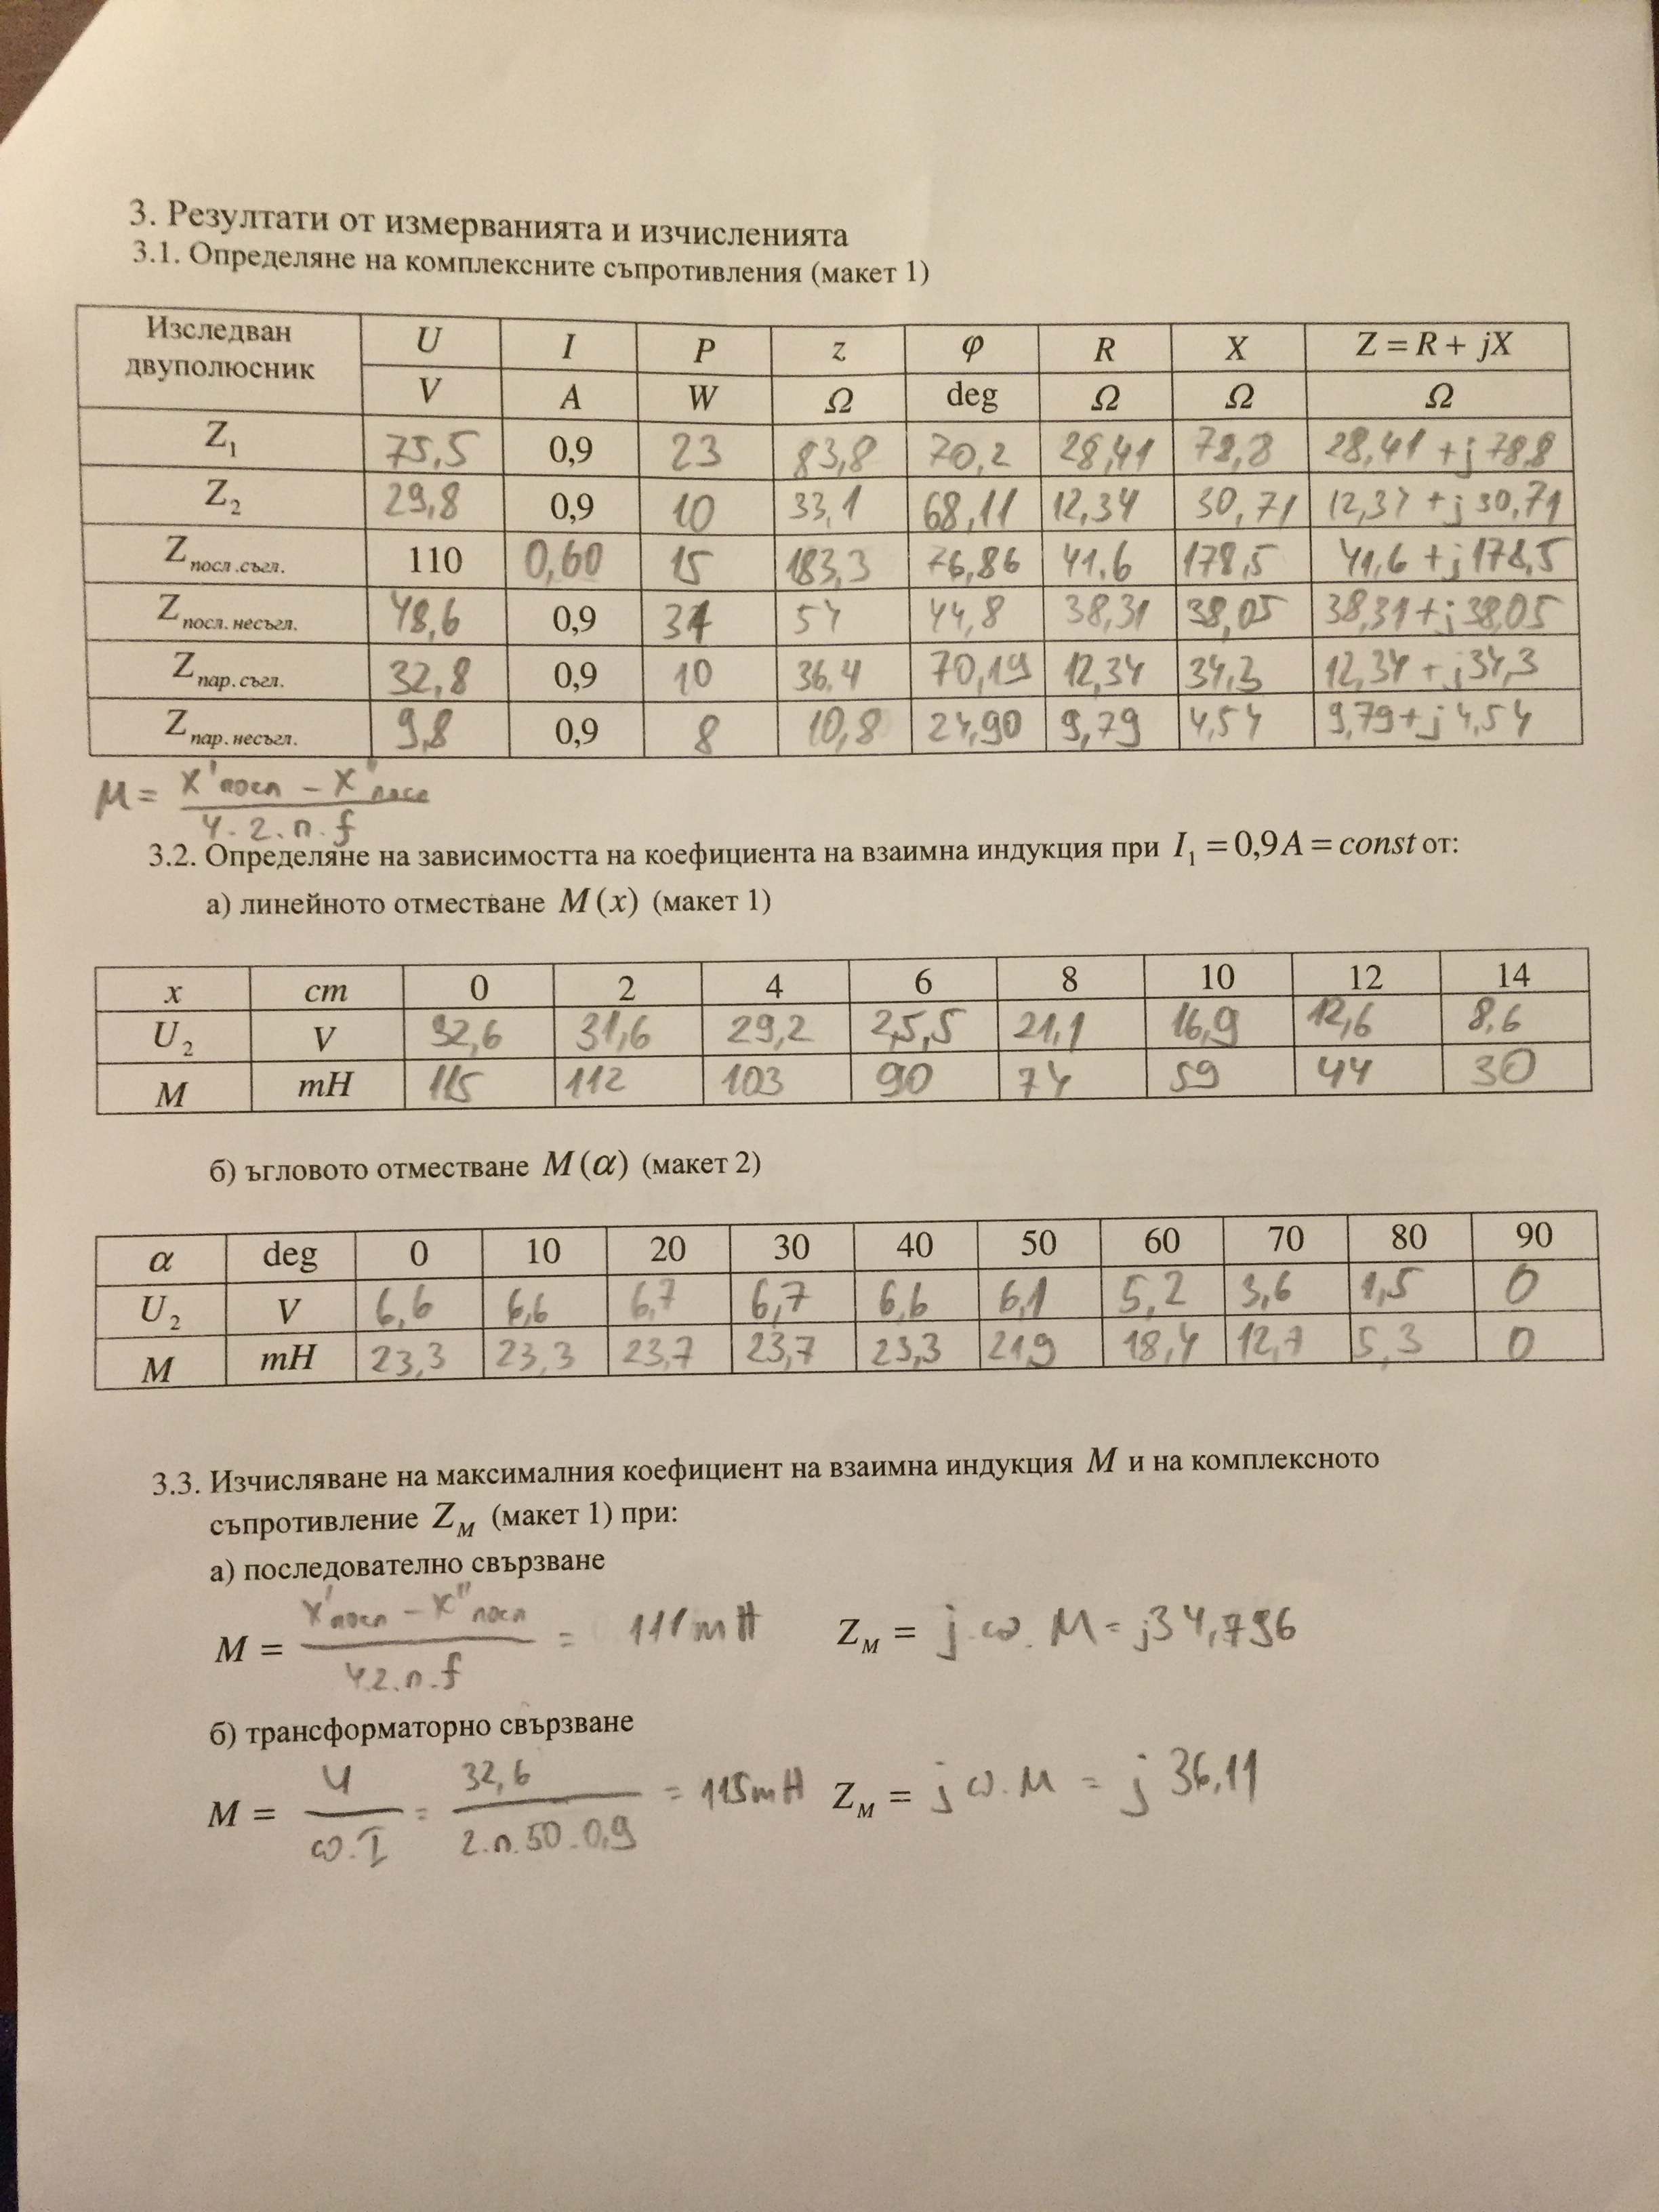 3. Резултати от измерванията и изчисленията
3.1. Определяне на комплексните съпротивления (макет 1)
Изследван двуполюсник U I P z φ R X Z = R + jX
V A W Ω deg Ω Ω Ω
Z1 75,5 0,9 23 83,8 70,2 28,41 78,8 28,41 + j 78,8
Z2 29,8 0,9 10 33,1 68,11 12,34 30,71 12,34 + j 30,71
Z посл.съгл. 110 0,60 15 183,3 76,86 41,6 178,5 41,6 + j 178,5
Z посл. несъгл. 48,6 0,9 31 54 44,8 38,31 38,05 38,31 + j 38,05
Z пар. съгл. 32,8 0,9 10 36,4 70,19 12,34 34,3 12,34 + j 34,3
Z пар. несъгл. 9,8 0,9 8 10,8 24,90 9,79 4,54 9,79 + j 4,54
M = X'посл - X''посл
4.2.п.f
3.2. Определяне на зависимостта на коефициента на взаимна индукция при I1 = 0,9A = const от:
а) линейното отместване M (x) (макет 1)
x cm 0 2 4 6 8 10 12 14
U2 V 32,6 31,6 29,2 25,5 21,1 16,9 12,6 8,6
M mH 115 112 103 90 74 59 44 30
б) ъгловото отместване M (α) (макет 2)
α deg 0 10 20 30 40 50 60 70 80 90
U2 V 6,6 6,6 6,7 6,7 6,6 6,1 5,2 3,6 1,5 0
M mH 23,3 23,3 23,7 23,7 23,3 21,9 18,4 12,7 5,3 0
3.3. Изчисляване на максималния коефициент на взаимна индукция M и на комплексното
съпротивление ZM (макет 1) при:
а) последователно свързване
M = X'посл - X''посл / 4.2.п.f = 111mH ZM = j.ω.M = j34,796
б) трансформаторно свързване
M = U / ω.I = 32,6 / 2.п.50.0,9 = 115mH ZM = jω.M = j 36,11